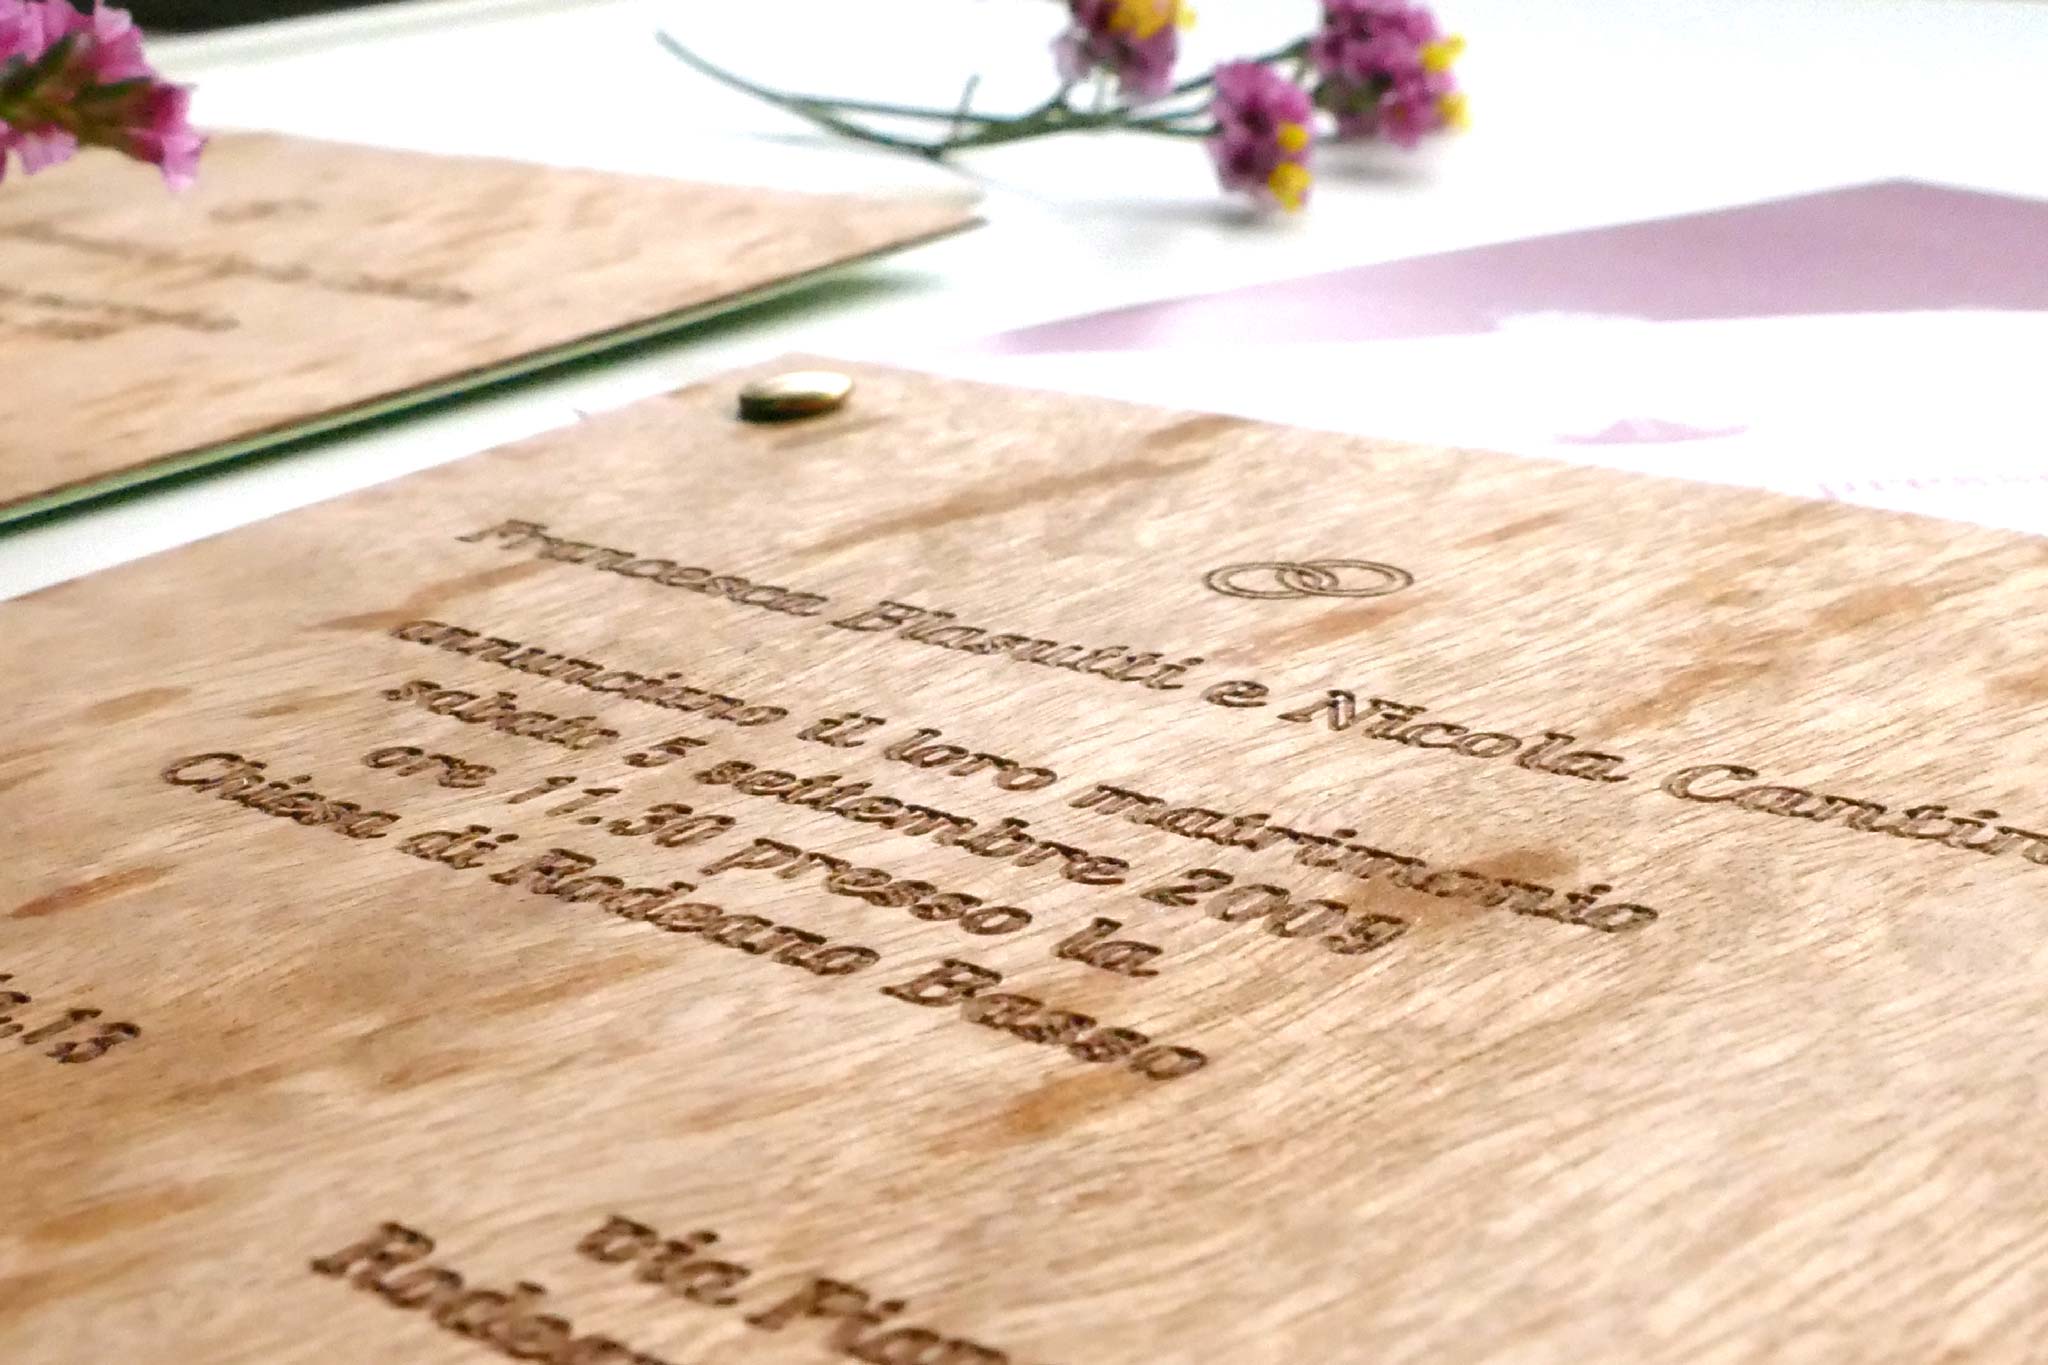 Francesca Biasutti e Nicola
annunciano il loro matrimonio
sabato 5 settembre 2009
ore 11.30 presso la
Chiesa di Rodeano Basso
13
via